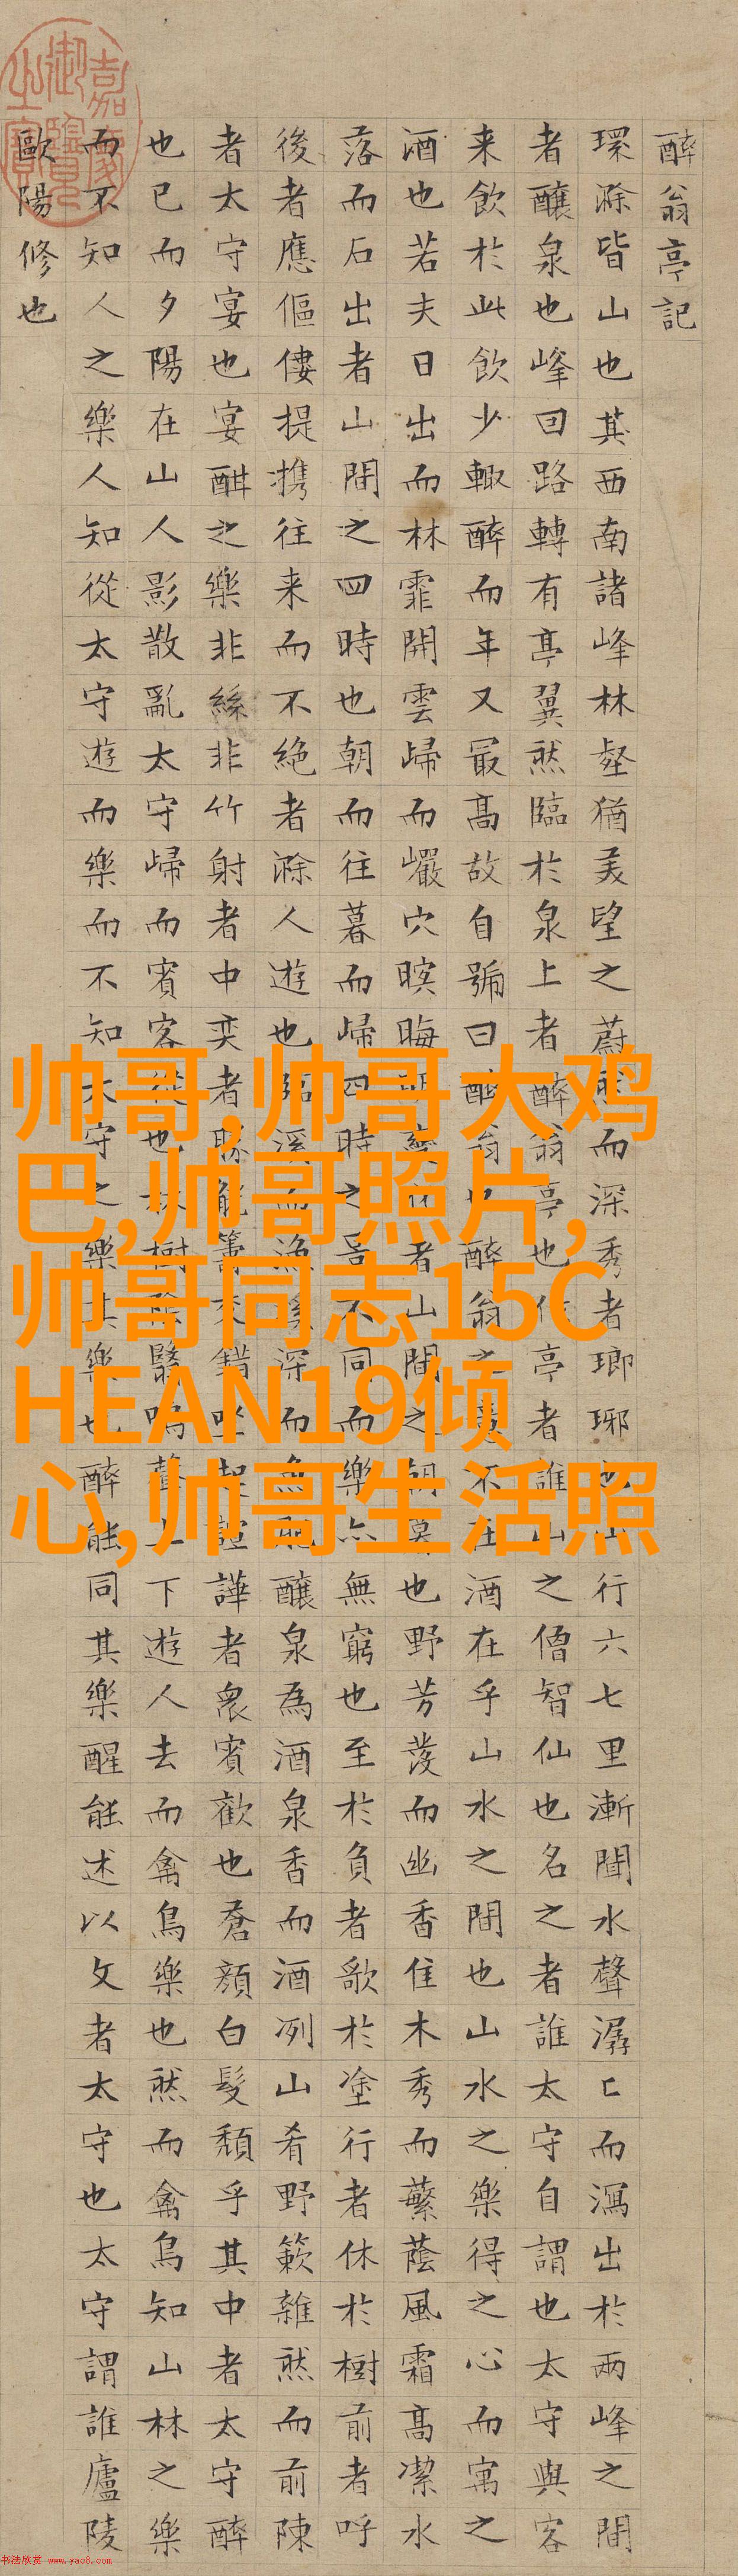 醉翁亭記
環滁皆山也其西南諸峰林壑猶美望之蔚然而深秀者瑯琊也山行六七里漸聞水聲潺〻而瀉出於兩峰之間
者釀泉也峰回路轉有亭翼然臨於泉上者醉翁亭也作亭者誰山之僧智仙也名之者誰太守自謂也太守與客
来飲於此飲少輙醉而年又最高故自號曰醉翁也醉翁之意不在酒在乎山水之間也山水之樂得之心而寓之
酒也若夫日出而林霏開雲歸而巖穴暝晦明變化者山間之朝暮也野芳發而幽香佳木秀而蘩蔭風霜高潔水
落而石出者山間之四時也朝而往暮而歸四時之景不同而樂亦無窮也至於負者歌於塗行者休於樹前者呼
後者應傴僂提携往来而不絶者滁人遊也臨溪而漁溪深而魚肥釀泉為酒泉香而酒冽山肴野蔌雜然而前陳
者太守宴也宴酣之樂非絲非竹射者中奕者勝觥籌交錯坐起諠譁者衆賓歡也蒼顔白髮頹乎其中者太守醉
也已而夕陽在山人影散亂太守歸而賓客從也林樹陰翳鳴聲上下遊人去而禽鳥樂也然而禽鳥知山林之樂
而不知人之樂人知從太守遊而樂而不知太守之樂其樂也醉能同其樂醒能述以文者太守也太守謂誰廬陵
歐陽修也
嘉慶御覽之寶
帅哥,帅哥大鸡
巴,帅哥照片,
帅哥同志15C
HEAN19倾
心,帅哥生活照
书法欣赏 www.yac8.com